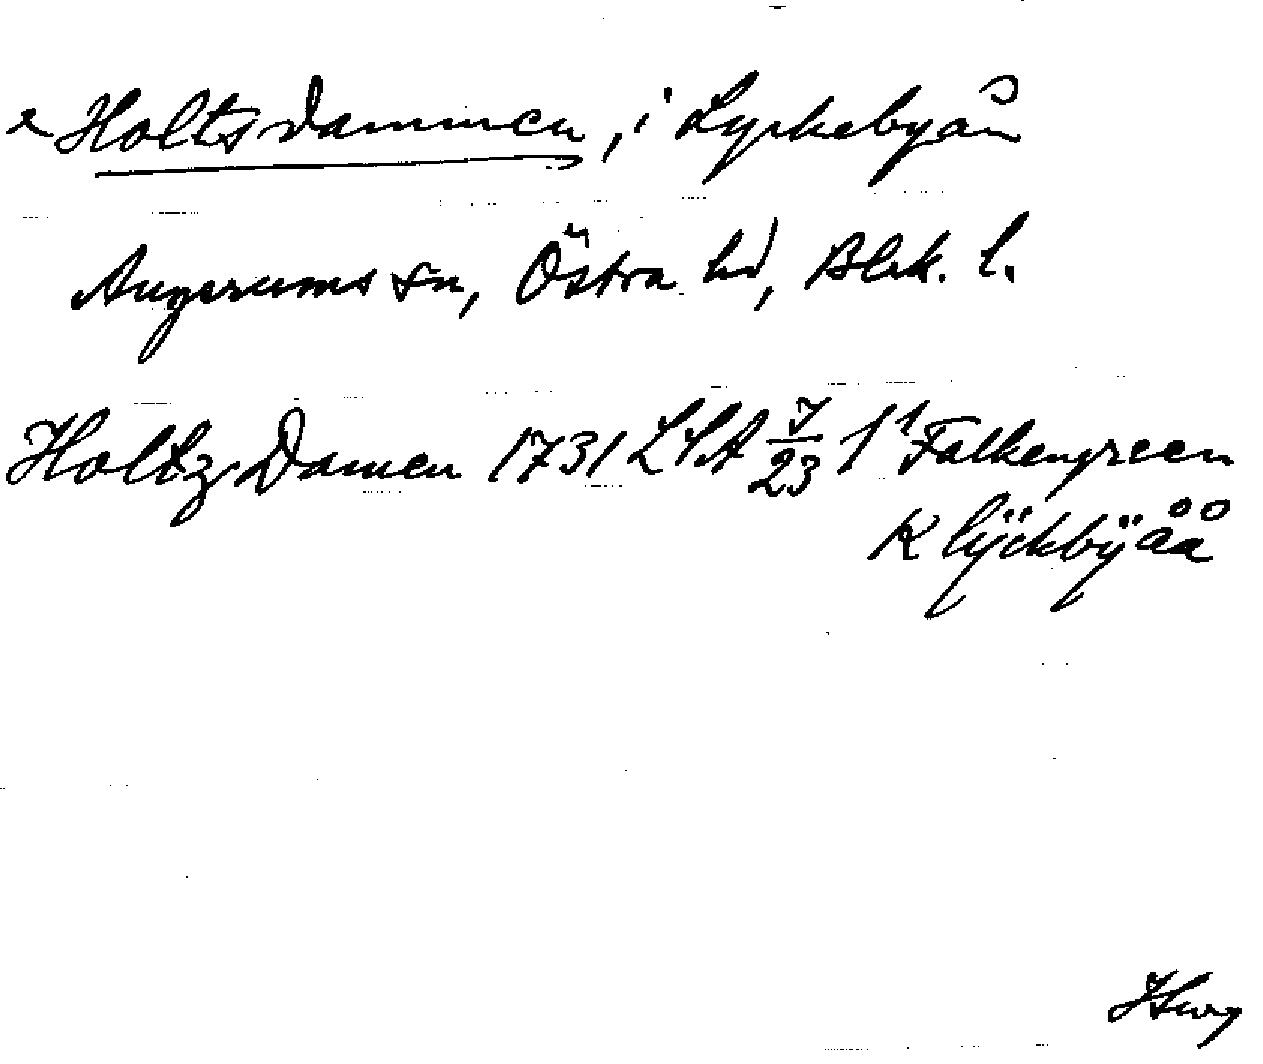 Holtsdammen, i Lyckebyån
Augerums sn, Östra hd, Blek. l.
Holtz Damen 1731 LSA 7/23 Falkengreen
K lÿckbÿåå